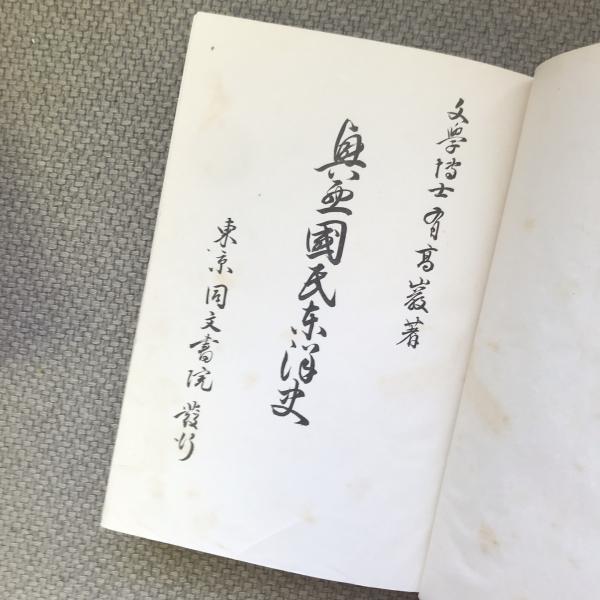 文學博士有高巖著
興亜國民東洋史
東京同文書院發行